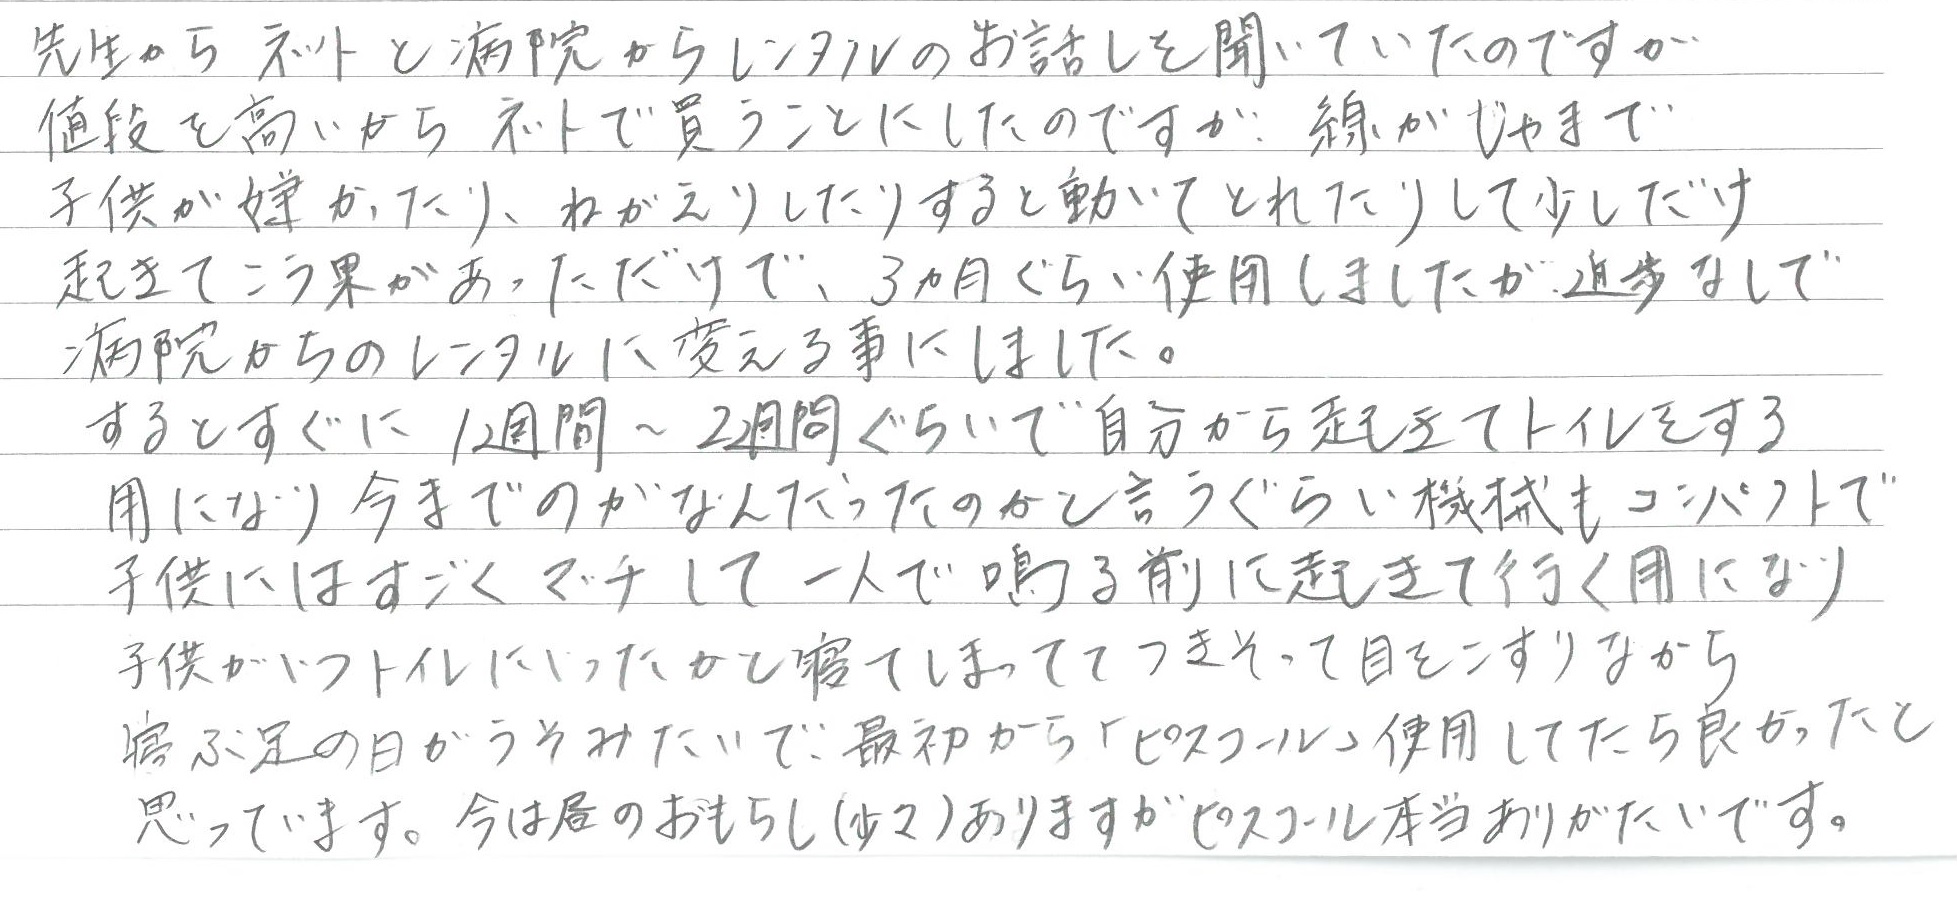 先生から ネットと病院からレンタルのお話しを聞いていたのですが
値段を高いから ネットで買うことにしたのですが、線がじゃまで
子供が嫌がったり、ねがえりしたりすると動いてとれたりして少しだけ
起きてこう果があっただけで、3ヵ月ぐらい使用しましたが進歩なしで
病院からのレンタルに変える事にしました。
するとすぐに 1週間〜2週間ぐらいで自分から起きてトイレをする
用になり 今までのがなんだったのかと言うぐらい機械もコンパクトで
子供にはすごくマッチして一人で鳴る前に起きて行く用になり
子供がいつトイレにいったかと寝てしまっててつきそって目をこすりながら
寝ぶ足の日がうそみたいで、最初から「ピスコール」使用してたら良かったと
思っています。今は昼のおもらし(少々)ありますがピスコール本当ありがたいです。